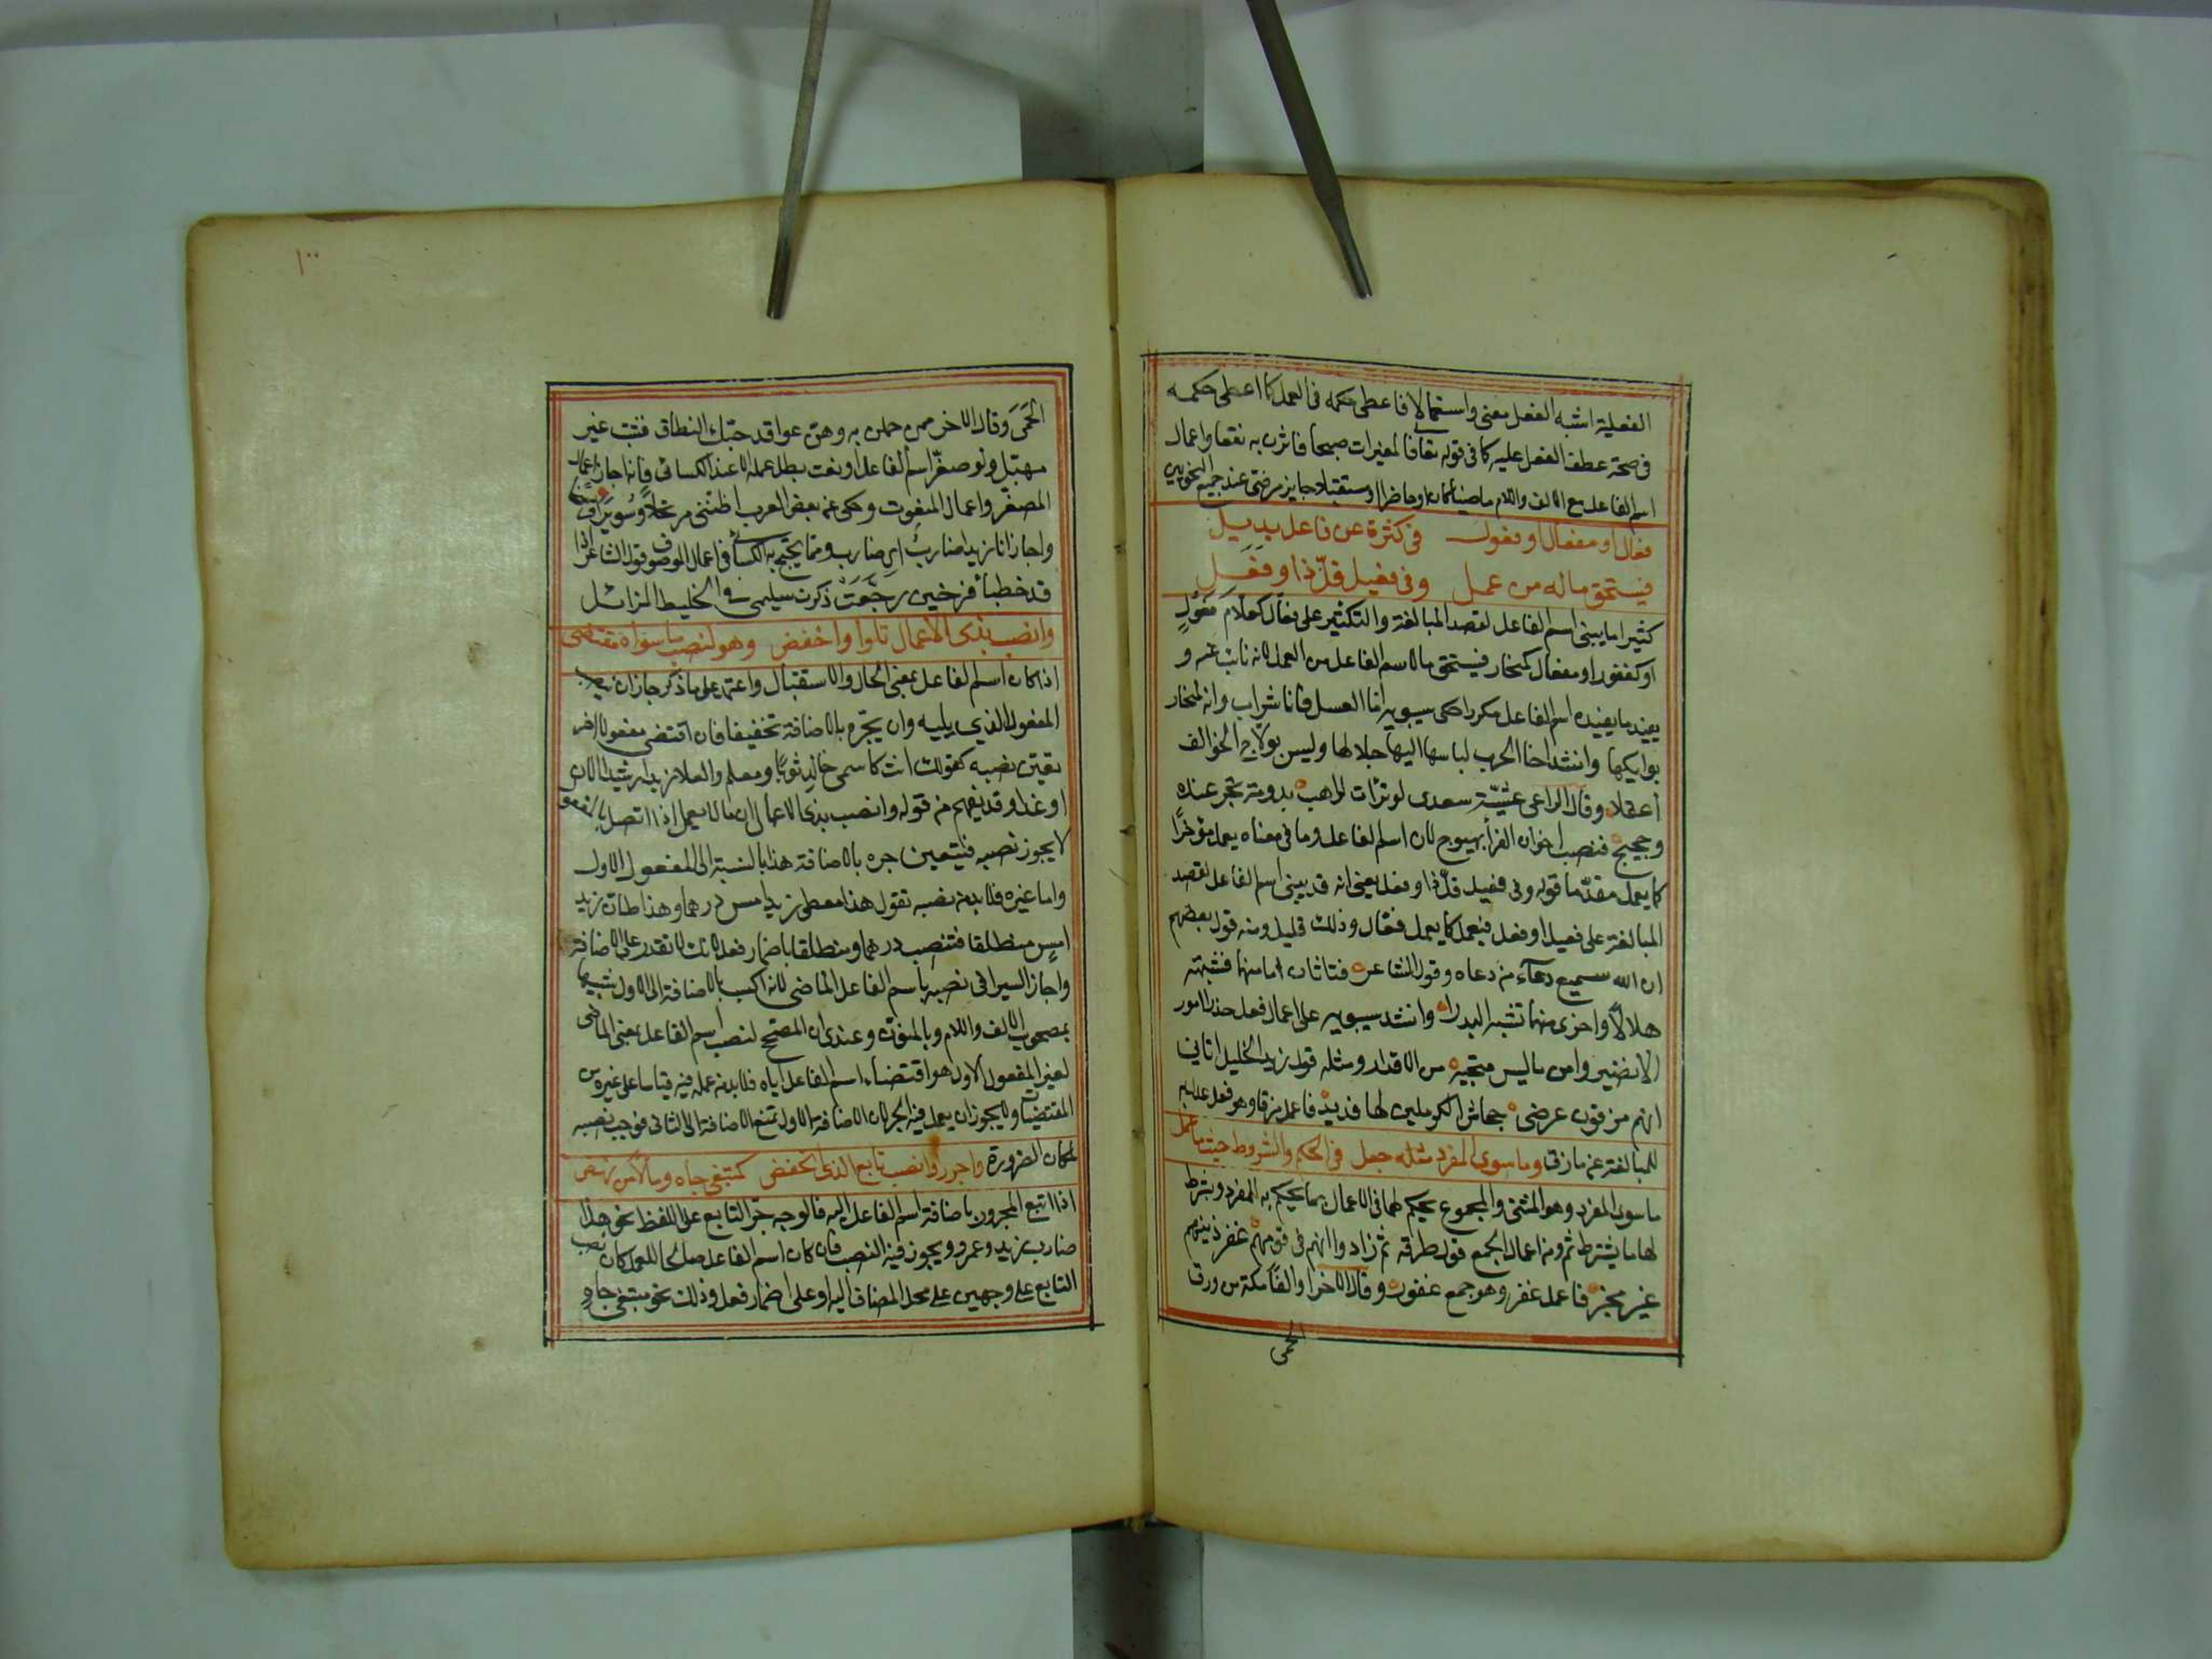 الفعلية اشبه الفعل معنى واستعمالا فاعطى حكمه فى العمل كما اعطى حكمه
فى صحة عطف الفعل عليه كما فى قوله تعالى فالمغيرات صبحا فاثرن به نقعا واعمال
اسم الفاعل مع الالف واللام ماضيا كان او حاضرا او مستقبلا جايز مرضى عند جميع النحويين
فعال او مفعال او فعول فى كثرة عن فاعل بديل
فيستحق ماله من عمل وفى فعيل قلّ ذا وفَعِل
كثيرا ما يبنى اسم الفاعل لقصد المبالغة والتكثير على فعال كعلام فعول
او كغفور او مفعال كنحار فيستحق ما لاسم الفاعل من العمل لانه نائب عنه و
يفيد ما يفيده اسم الفاعل مكررا حكى سيبويه اما العسل فانا شراب وانه لمنحار
بوايكها وانشد اخا الحرب لباسها اليها جلالها وليس بولاج الخوالف
أعقلا وقال الراعى عشيّة سعدى لو تراءت لراهب بدومة تجر عنده
وحجيج فنصب اخوان الفرا بهيوج لان اسم الفاعل وما فى معناه يعمل مؤخرا
كما يعمل مقدّما قوله وفى فعيل قلّ ذا وفعل يعنى انه قد يبنى اسم الفاعل لقصد
المبالغة على فعيل او فعل فيعمل كما يعمل فعّال وذلك قليل ومنه قول بعضهم
ان الله سميع دعآء من دعاه وقول الشاعر فتاتان اما منهما فشبهته
هلالا واخرى منهما تشبه البدرا وانشد سيبويه على اعمال فعل حذر امور
لا تضير وامن ما ليس منجيه من الاقدار ومثله قول زيد الخليل اتانى
انهم مزقون عرضى جحاش الكرملين لها فديد فاعمل مزقا وهو فعل عدل به
للمبالغة عن مازق وما سوى المفرد مثله جعل فى الحكم والشروط حيث ما عمل
ما سوى المفرد وهو المثنى والمجموع يحكم لهما فى الاعمال بما يحكم به المفرد ويشترط
لها ما يشترط ثم ومن اعمال الجمع قول طرفة ثم زادوا انهم فى قومهم غفر ذنبهم
غير فجر فاعمل غفر وهو جمع غفور وقال الاخر اوالفا مكة من ورق
الحمى
١٠٠
الحَمَى وقال الاخر ممن حملن به وهن عواقد حبك النطاق فشب غير
مهبّل ولو صغّر اسم الفاعل او نعت بطل عمله الا عند الكسائى فانه اجاز اعمال
المصغّر واعمال المنعوت وحكى عن بعض العرب اظننى مرتحلا وسُويرا فرسخا
واجاز انا زيدا ضارب اى ضارب ومما يحتج به الكسائى فى اعمال الموصوف قول الشاعر اذا
فقد خطبا فرخين رجَّعَت ذكرت سليمى فى الخليط المزايل
وانصب بذى الاعمال تلوا واخفض وهو لنصب ما سواه مقتضى
اذا كان اسم الفاعل بمعنى الحال والاستقبال واعتمد على ما ذكر جاز ان ينصب
المفعول الذي يليه وان يجّره بالاضافة تخفيفا فان اقتضى مفعولا اخر
تعيّن نصبه كقولك انت كاسى خالد ثوبا ومعلم العلاء زيدا رشيدا الان
او غدا وقد يفهم من قوله وانصب بذى الاعمال ان ما لا يعمل اذا اتصل بالمفعول
لا يجوز نصبه فيتعين جره بالاضافة هذا بالنسبة الى المفعول الاول
واما غيره فلا بد من نصبه تقول هذا معطى زيد امس درهما وهذا ظان زيد
امس منطلقا فتنصب درهما ومنطلقا باضمار فعل لانك لا تقدر على الاضافة
واجاز السيرافى نصبه باسم الفاعل الماضى لانه اكتسب بالاضافة الى الاول شبها
بمصحوب الالف واللام وبالمنون وعندى ان المصحح لنصب اسم الفاعل بمعنى الماضى
لغير المفعول الاول هو اقتضاء اسم الفاعل اياه فلا بد من عمله فيه قياسا على غيره من
المقتضيات ولا يجوز ان يعمل فيه الجر لان الاضافة الى الاول تمنع الاضافة الى الثانى فوجب نصبه
لمكان الضرورة واجرر او انصب تابع الذى انخفض كمبتغى جاه ومالا من نهض
اذا اتبع المجرور باضافة اسم الفاعل اليه فالوجه جرّ التابع على اللفظ نحو هذا
ضارب زيد وعمرو ويجوز فيه النصب فان كان اسم الفاعل صالحا للعمل كان نصب
التابع على وجهين على محل المضاف اليه او على اضمار فعل وذلك نحو مبتغى جاه